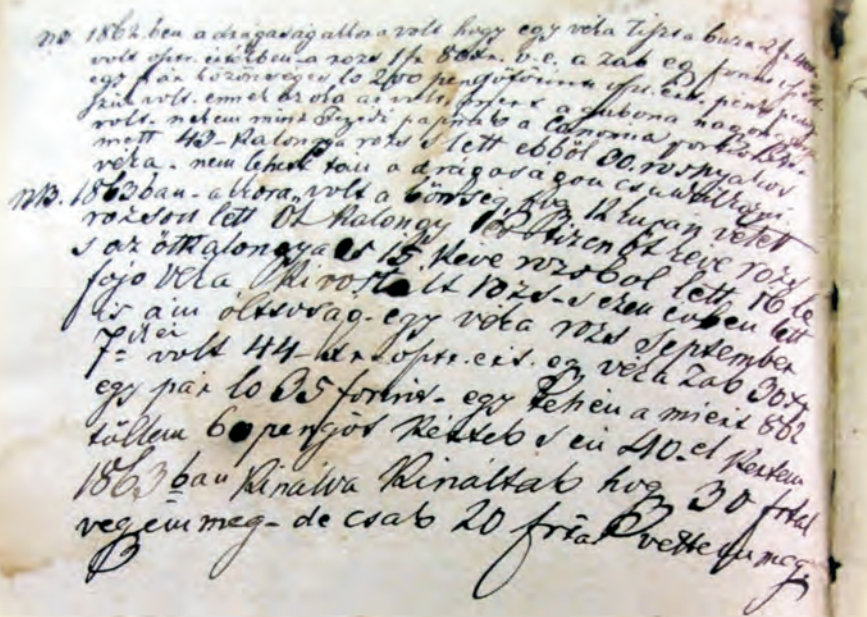 nB. 1862.ben a drágaság akkora volt hogy egy véka tiszta buza 2 f
volt ostr. értékben - a rozs 1 fr 80 xr. v. e. a zab eg forint
egy pár közönséges lo 200 pengőforint ostr. ért. pénz
szük volt. ennek az oka az volt, mert a gubona nagyon
volt. nekem mint papnak a canonica
mett 43 - kalongya rozs s lett ebből 30. rosnyai
véka - nem lehet tán a drágaságon csudálkozni.
nB. 1863ban - akkora volt a bőség, hog 12 kupán vetett
rozsom lett öt kalongy tizenöt keve rozs
s az öt kalongya és 15 keve rozsbol lett 16 le
fojo véka kirostált rozs - s ezen évben lett
is ám óltsóság - egy véka rozs September
7= volt 44 - xr. ostr. ért. eg véka zab 30 xr
egy pár lo 35 forint - egy tehén a miért 862
töllem 60 pengőt kértek s én 40-et kértem
1863ban kinálva kinálták hog 30 frtal
vegém meg - de csak 20 frtal vettem meg